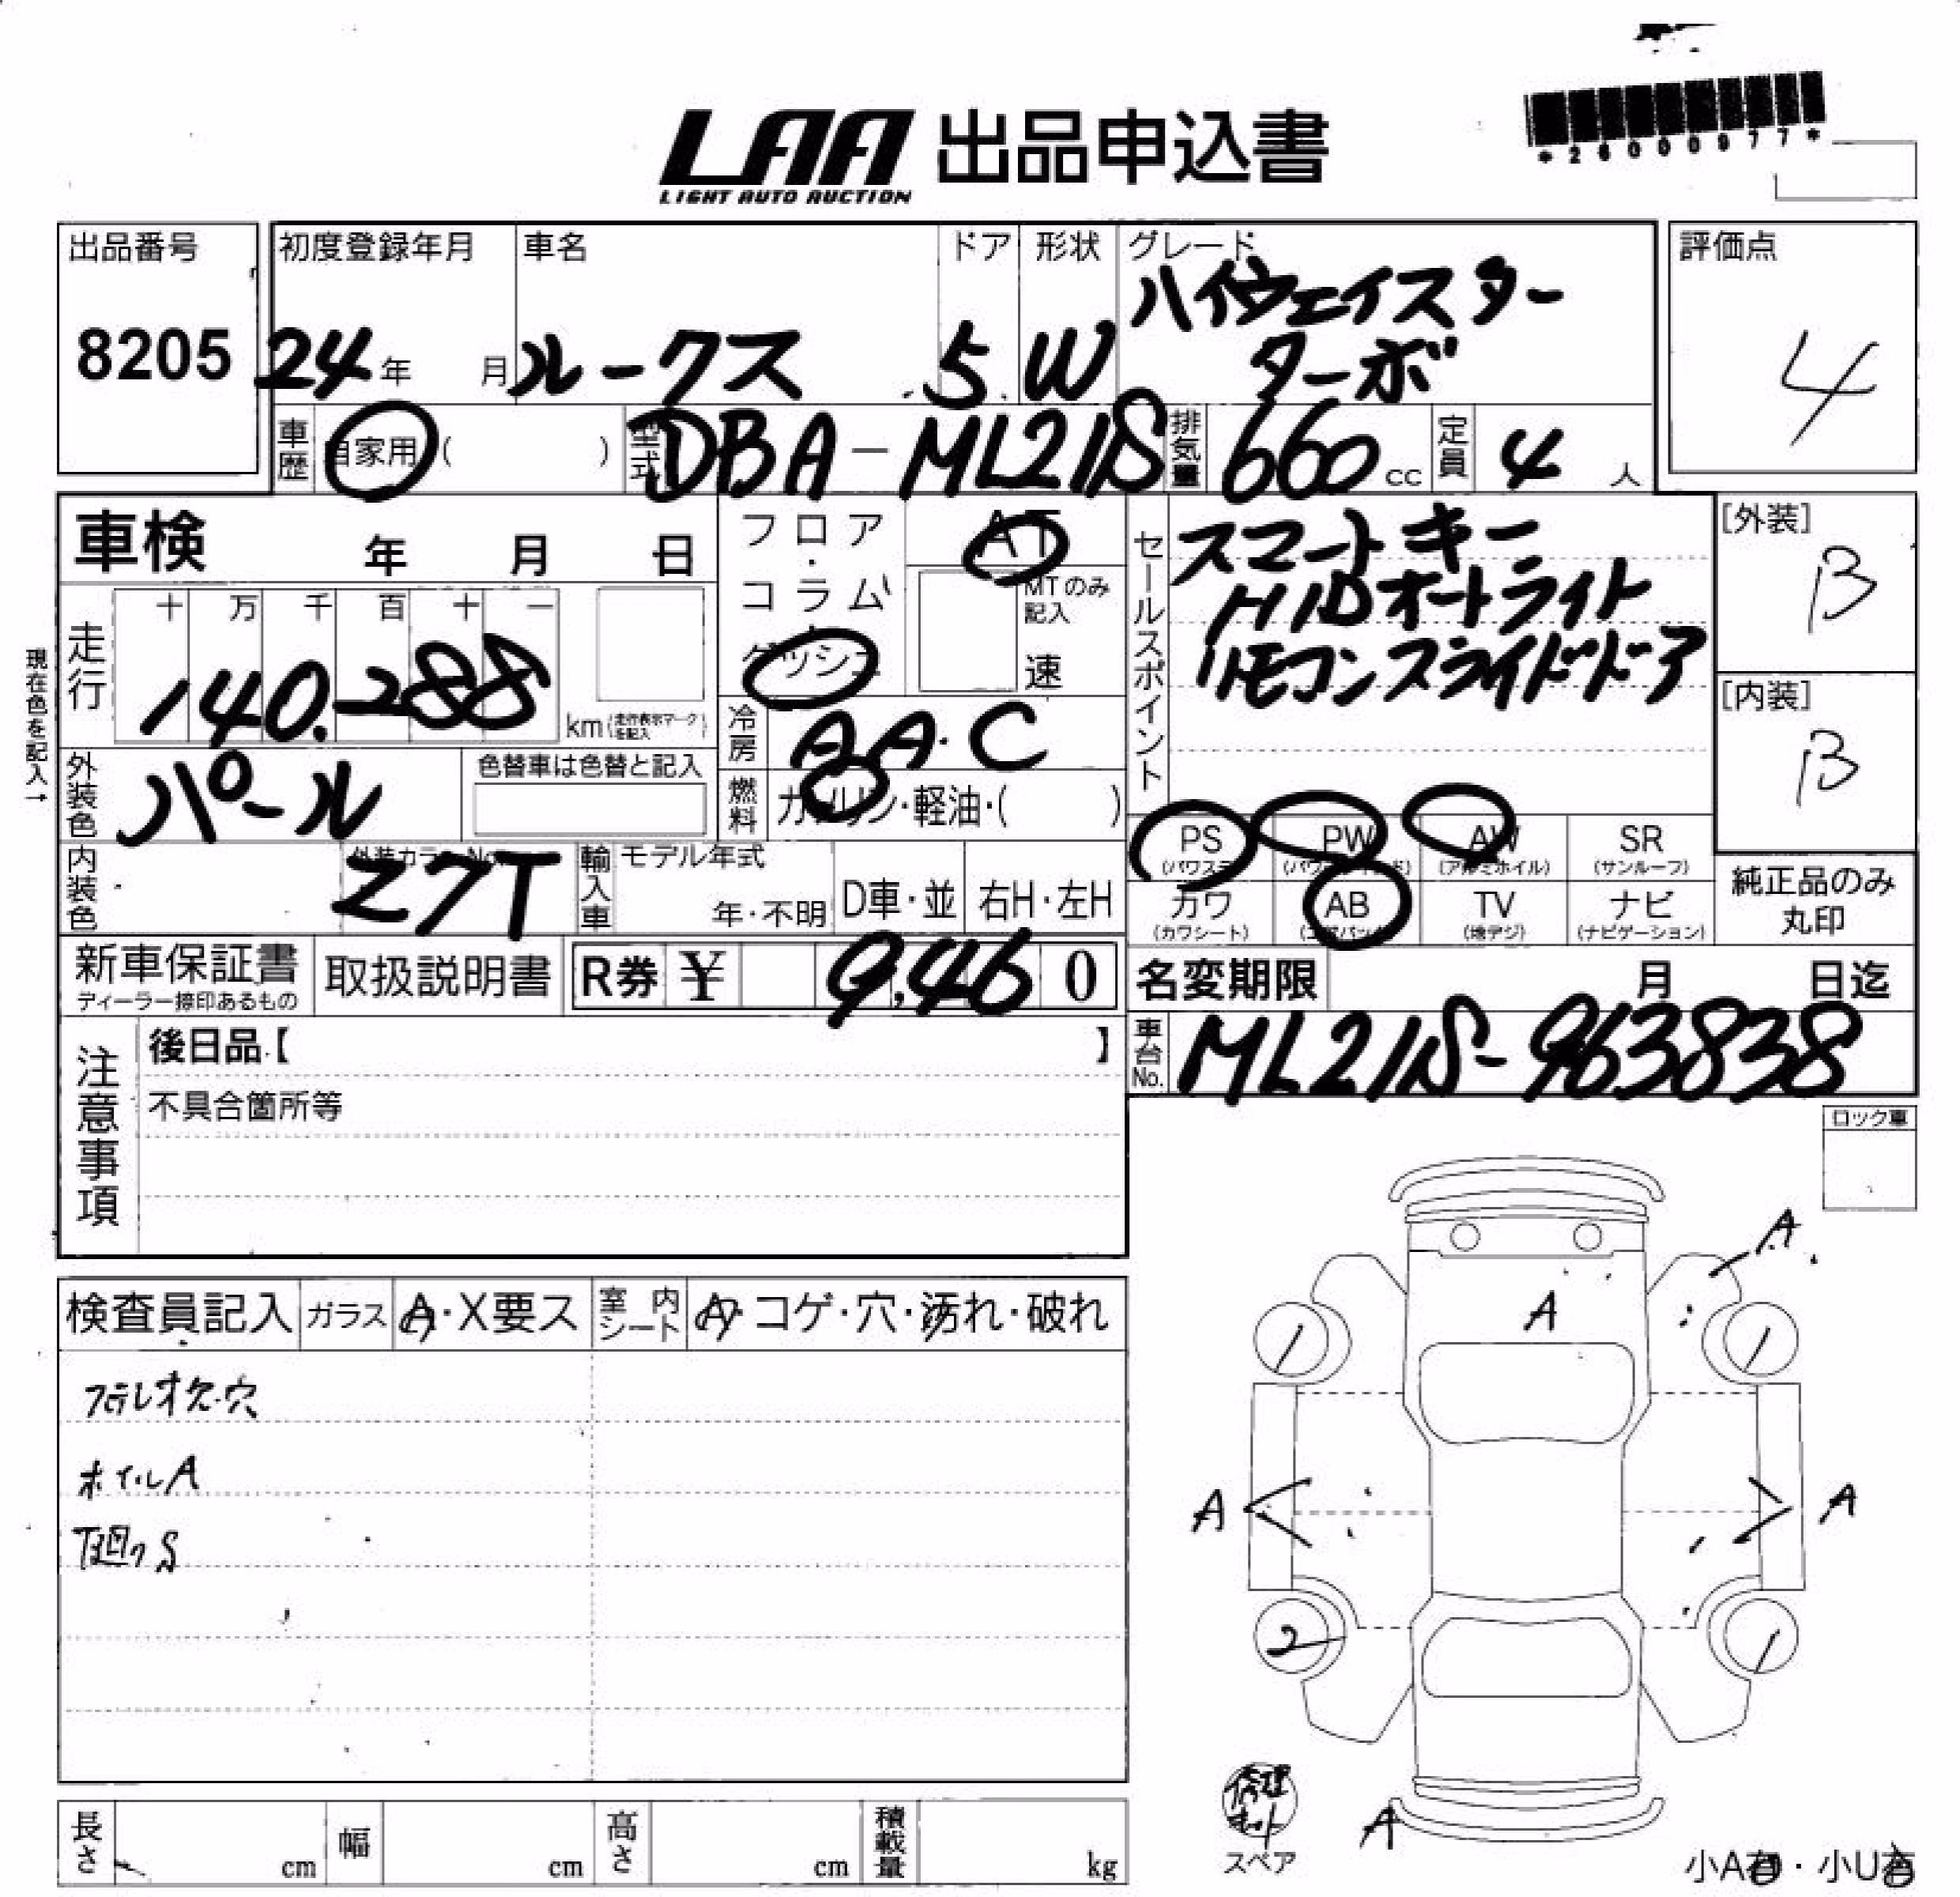 LAA 出品申込書
LIGHT AUTO AUCTION
*26000977*
出品番号
8205
初度登録年月
24年 月
車名
ルークス
ドア
5
形状
W
グレード
ハイウェイスター
ターボ
評価点
4
車歴
自家用 ( )
型式
DBA-ML21S
排気量
660 cc
定員
4 人
車検 年 月 日
フロア・
コラム・
ダッシュ
AT
MTのみ
記入
速
セールスポイント
スマートキー
HIDオートライト
リモコンスライドドア
[外装]
B
[内装]
B
現在色を記入→
走行
十 万 千 百 十 一
140.288
km(走行表示マークを記入)
冷房
AA・C
外装色
パール
色替車は色替と記入
燃料
ガソリン・軽油・( )
PS
(パワステ)
PW
(パワーウインド)
AW
(アルミホイル)
SR
(サンルーフ)
カワ
(カワシート)
AB
(エアバック)
TV
(地デジ)
ナビ
(ナビゲーション)
純正品のみ
丸印
内装色
外装カラーNo.
Z7T
輸入車
モデル年式
年・不明
D車・並
右H・左H
新車保証書
ディーラー捺印あるもの
取扱説明書
R券 ¥ 9,46 0
名変期限 月 日迄
車台No.
ML21S-963838
注意事項
後日品【 】
不具合箇所等
ロック車
検査員記入
ガラス
A・X要ス
室内シート
A・コゲ・穴・汚れ・破れ
ステレオ欠・穴
ホイルA
下廻りS
A
A
A
A
A
2
修理
キット
スペア
小A有・小U有
長さ cm
幅 cm
高さ cm
積載量 kg